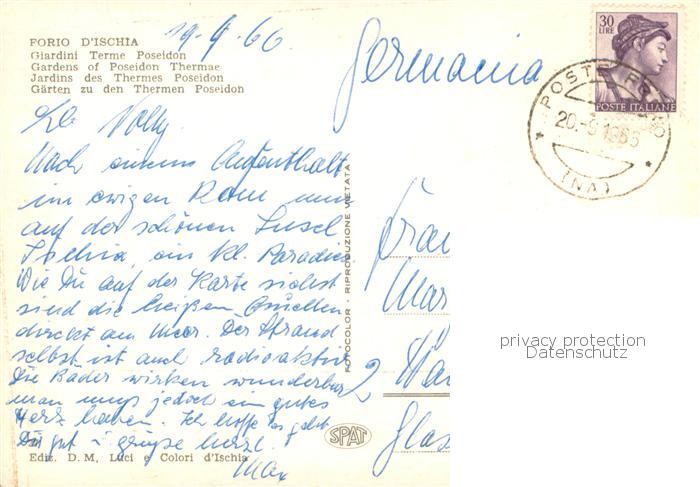 19.9.66
FORIO D'ISCHIA
Giardini Terme Poseidon
Gardens of Poseidon Thermae
Jardins des Thermes Poseidon
Gärten zu den Thermen Poseidon
Germania
30
LIRE
POSTE ITALIANE
POSTE
20.-9.1966
(NA)
Lb.
Nach einem Aufenthalt
im ewigen Rom nun
auf der schönen Insel
Ischia, ein kl. Paradies.
Wie Du auf der Karte siehst
sind die heißen Quellen
direkt am Meer. Der Strand
selbst ist auch radioaktiv
Die Bäder wirken wunderbar
man muß jedoch ein gutes
Herz haben. Ich hoffe es geht
Dir gut u. grüße herzl.
Max
FOTOCOLOR - RIPRODUZIONE VIETATA
Frau
Mar
2
Glas
SPAT
Ediz. D. M. Luci e Colori d'Ischia
privacy protection
Datenschutz